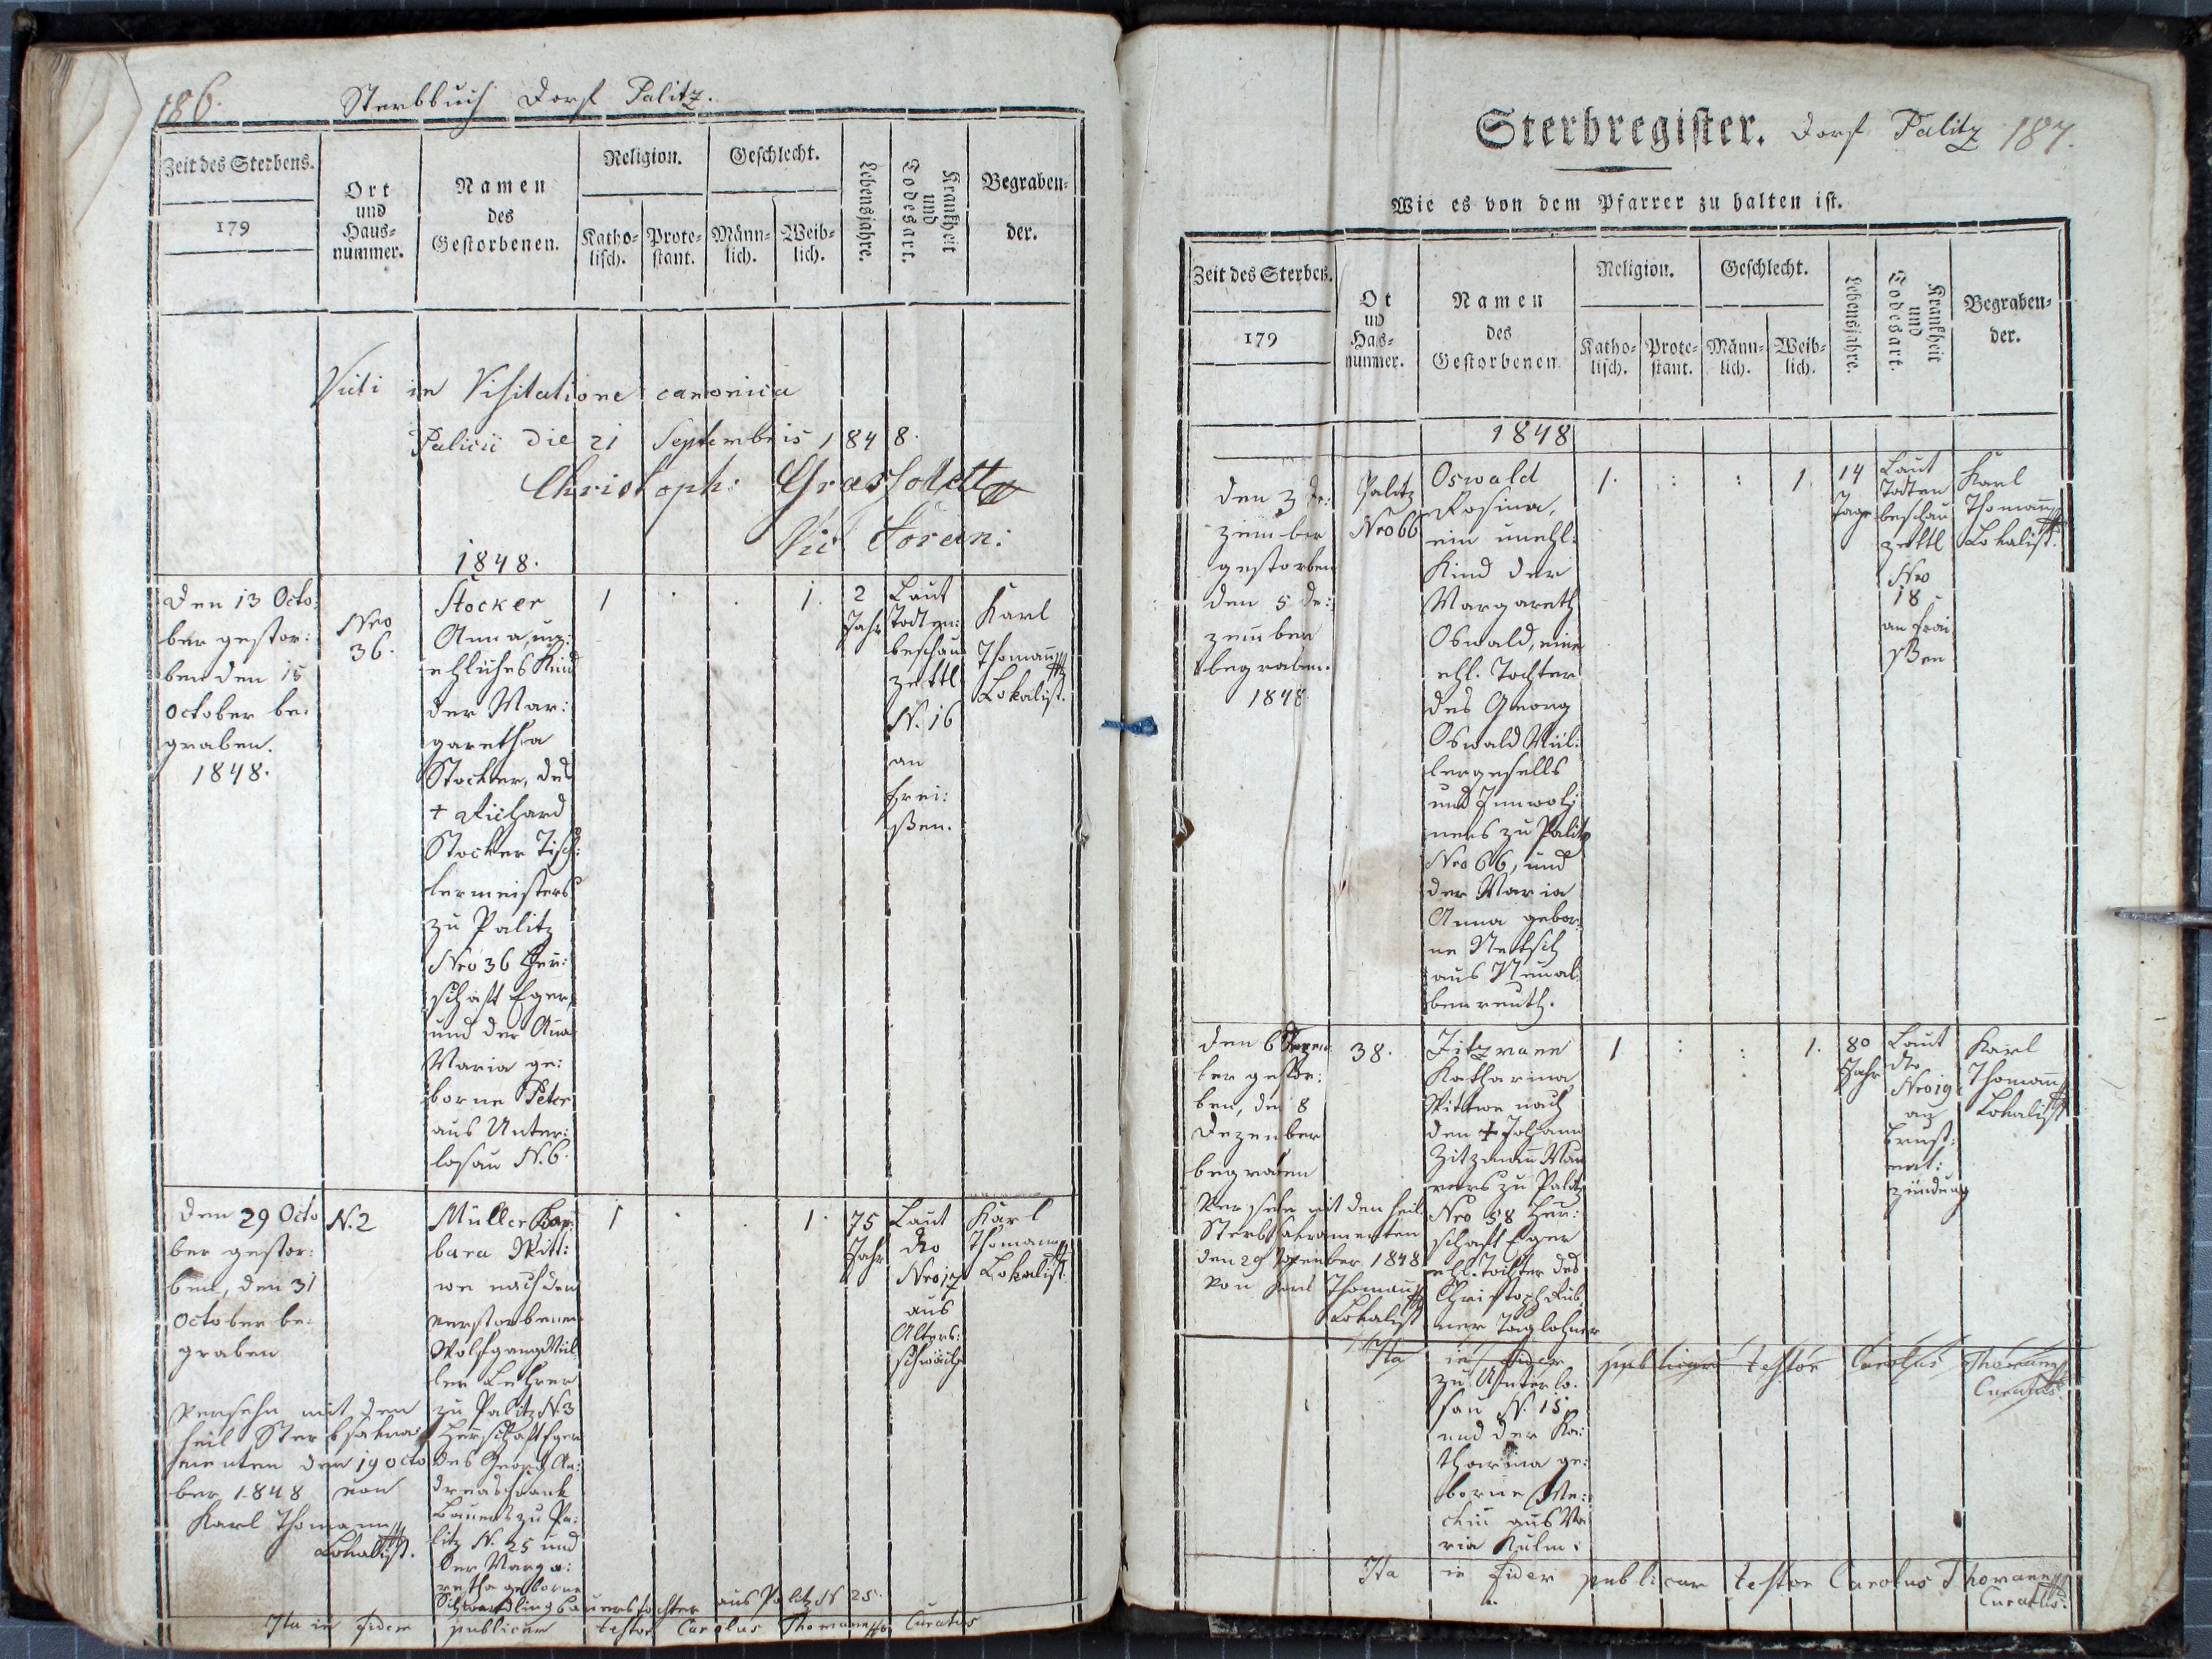 186. Sterbbuch Dorf Palitz.
Zeit des Sterbens.
179
Ort
und
Haus-
nummer.
Namen
des
Gestorbenen.
Religion.
Katho-
lisch.
Prote-
stant.
Geschlecht.
Männ-
lich.
Weib-
lich.
Lebensjahre.
Krankheit
und
Todesart.
Begraben-
der.
Vidi in Visitatione canonica
Palicii die 21 Septembris 1848.
Christoph:
Vic Foran:
1848.
Den 13 Octo:
ber gestor:
ben den 15
October be:
graben.
1848.
Nro
36.
Stocker
Anna, un:
ehliches Kind
der Mar:
garetha
Stocker, des
† Richard
Stocker Tisch:
lermeisters
zu Palitz
Nro 36 Herr:
schaft Eger,
und der Anna
Maria ge:
borne Peter
aus Unter:
losau N. 6.
1 . . 1.
2
Jahr
Laut
Todten:
beschau
zettl
N. 16
an
Frei:
ßen.
Karl
Thomann
Lokalist.
Den 29 Octo
ber gestor:
ben, den 31
October be:
graben
Versehn mit den
heil Sterbsakra:
menten den 19 Octo
ber 1848 von
Karl Thomann
Lokalist.
N. 2
Müller Bar:
bara Witt:
we nach dem
verstorbenen
Wolfgang Mül
ler Lehrer
zu Palitz N. 3
Herrschaft Eger
des Georg An:
dreas Frank
Bauers zu Pa:
litz N. 25 und
der Marga:
retha geborne
Bauerstochter aus Palitz N 25.
1 . . 1.
75
Jahr
Laut
dto
Nro 17
aus
Alters:
schwäche
Karl
Thomann
Lokalist.
Ita in fidem publicam testor Carolus Thomann Curatus
Sterbregister. Dorf Palitz 187.
Wie es von dem Pfarrer zu halten ist.
Zeit des Sterbens.
179
Ot
und
Haus-
nummer.
Namen
des
Gestorbenen
Religion.
Katho-
lisch.
Prote-
stant.
Geschlecht.
Männ-
lich.
Weib-
lich.
Lebensjahre.
Krankheit
und
Todesart.
Begraben-
der.
1848
den 3 De:
zember
gestorben
den 5 De:
zember
begraben.
1848
Palitz
Nro 66
Oswald
Rosina,
ein unehl:
Kind der
Margareth
Oswald, eine
ehl. Tochter
des Georg
Oswald Mül:
lergesells
und Innwoh:
ners zu Palitz
Nro 66, und
der Maria
Anna gebor:
ne
aus Neual:
benreuth.
1. : : 1.
14
Tage
Laut
Todten
beschau
zettl
Nro
18
an Frai
ßen
Karl
Thomann
Lokalist.
den 6 Dezem
ber gestor:
ben, den 8
Dezember
begraben
Versehn mit den heil
Sterbsakramenten
den 29 November 1848
von Karl Thomann
Lokalist
38.
Zitzmann
Katharina
Wittwe nach
den † Johann
Zitzmann Mau
rers zu Palitz
Nro 38 Herr:
schaft Eger
ehl. Tochter des
Christoph
Taglohner
1 : : 1.
80
Jahr
Laut
dto
Nro 19
an
Brust:
ent:
zündung
Karl
Thomann
Lokalist
Ita in fidem publicam testor Carolus Thomann
Curatus
zu Unterlo:
sau N. 15
und der Ka:
tharina ge:
borne
aus Ma
ria Kulm.
Ita in fidem publicam testor Carolus Thomann
Curatus.